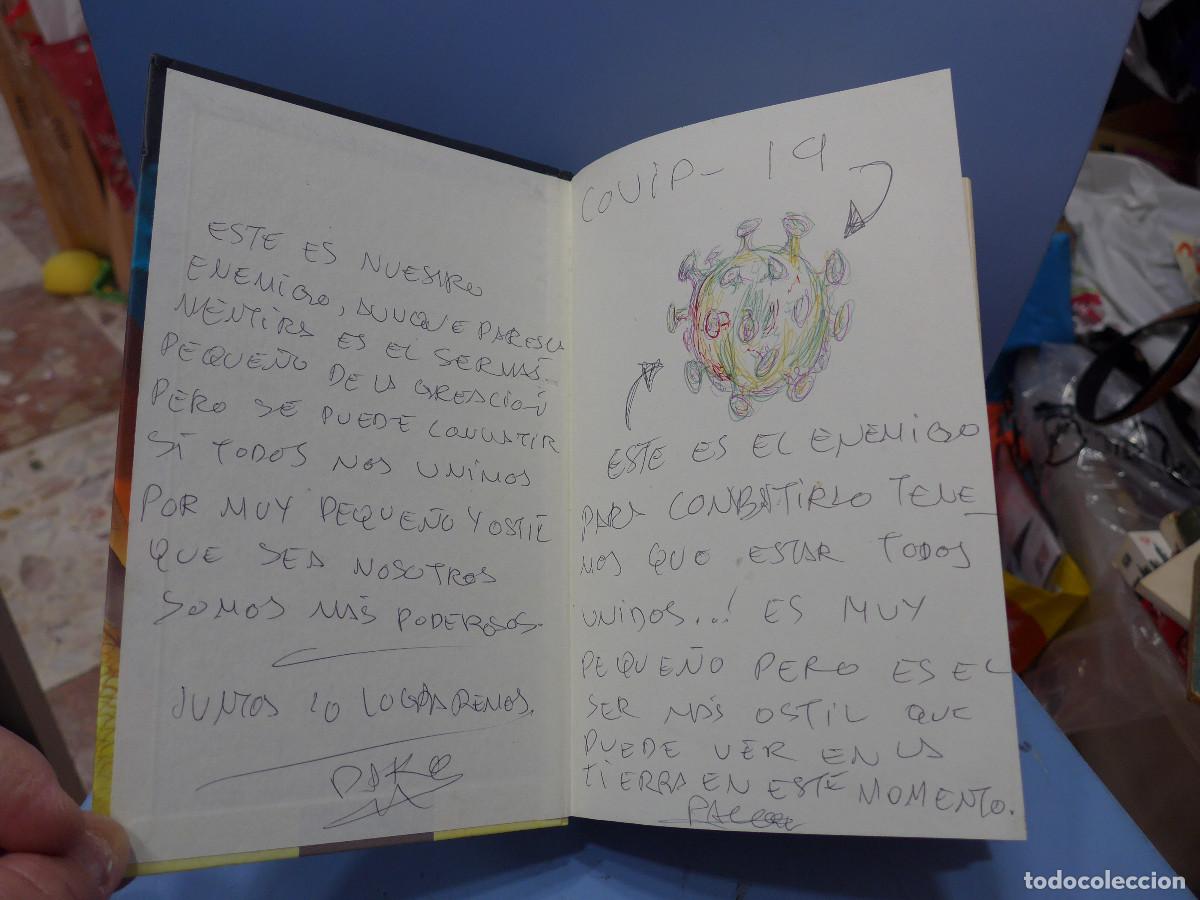 ESTE ES NUESTRO
ENEMIGO, AUNQUE PARESCA
MENTIRA ES EL SER MÁS
PEQUEÑO DE LA CREACIÓN
PERO SE PUEDE CONVATIR
SI TODOS NOS UNIMOS
POR MUY PEQUEÑO Y OSTIL
QUE SEA NOSOTROS
SOMOS MÁS PODEROSOS.
JUNTOS LO LOGRAREMOS.
COVID-19
ESTE ES EL ENEMIGO
PARA COMBATIRLO TENE_
MOS QUE ESTAR TODOS
UNIDOS...! ES MUY
PEQUEÑO PERO ES EL
SER MÁS OSTIL QUE
PUEDE VER EN LA
TIERRA EN ESTE MOMENTO.
todocoleccion